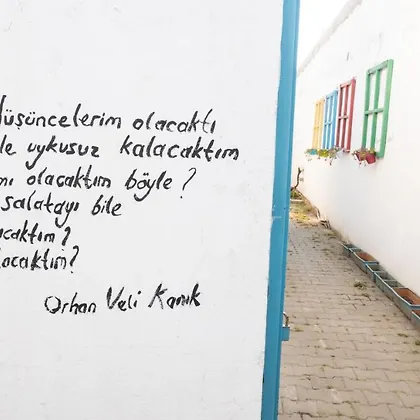 düşüncelerim olacaktı
uykusuz kalacaktım
olacaktım böyle?
salatayı bile
Orhan Veli Kanık